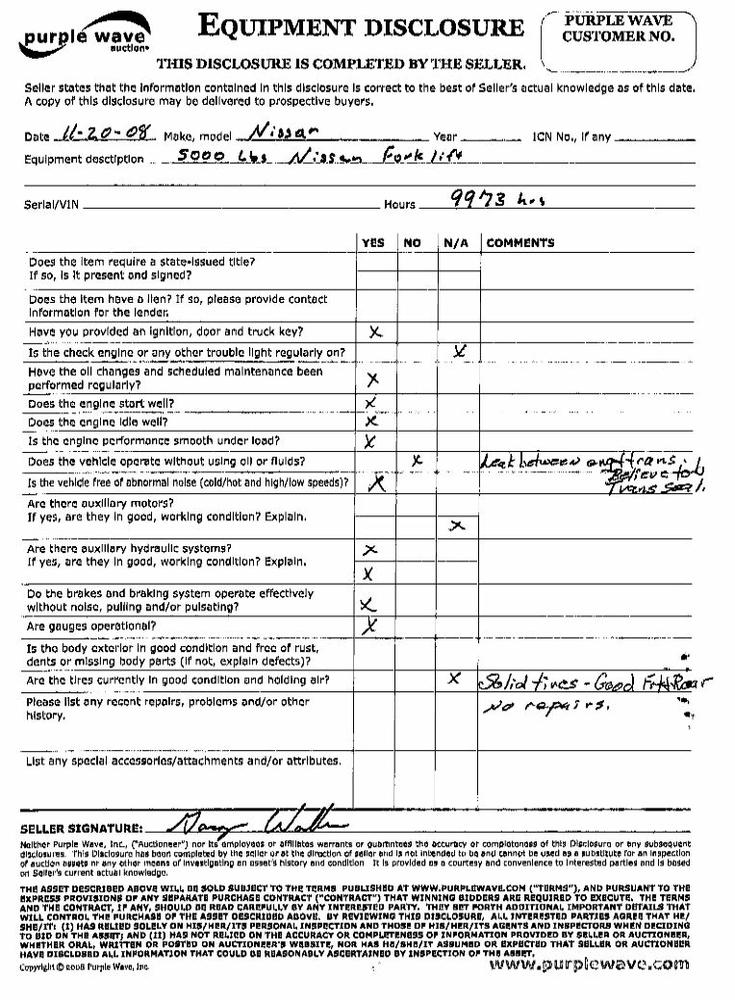 purple wave
auction
EQUIPMENT DISCLOSURE
THIS DISCLOSURE IS COMPLETED BY THE SELLER.
PURPLE WAVE
CUSTOMER NO.
Seller states that the information contained in this disclosure is correct to the best of Seller's actual knowledge as of this date.
A copy of this disclosure may be delivered to prospective buyers.
Date 11-20-08 Make, model Nissan Year ICN No., if any
Equipment desctiption 5000 Lbs Nissan Fork lift
Serial/VIN Hours 9973 hrs
YES NO N/A COMMENTS
Does the item require a state-issued title?
If so, is it present and signed?
Does the item have a lien? If so, please provide contact
information for the lender.
Have you provided an ignition, door and truck key? X
Is the check engine or any other trouble light regularly on? X
Have the oil changes and scheduled maintenance been
performed regularly? X
Does the engine start well? X
Does the engine idle well? X
Is the engine performance smooth under load? X
Does the vehicle operate without using oil or fluids? X Leak between eng/trans.
Believe to be
Is the vehicle free of abnormal noise (cold/hot and high/low speeds)? X Trans Seal.
Are there auxiliary motors?
If yes, are they in good, working condition? Explain. X
Are there auxiliary hydraulic systems? X
If yes, are they in good, working condition? Explain. X
Do the brakes and braking system operate effectively
without noise, pulling and/or pulsating? X
Are gauges operational? X
Is the body exterior in good condition and free of rust,
dents or missing body parts (if not, explain defects)?
Are the tires currently in good condition and holding air? X Solid tires - Good Frt+Rear
Please list any recent repairs, problems and/or other No repairs.
history.
List any special accessories/attachments and/or attributes.
SELLER SIGNATURE:
Neither Purple Wave, Inc., ("Auctioneer") nor its employees or affiliates warrants or guarantees the accuracy or completeness of this Disclosure or any subsequent
disclosures. This Disclosure has been completed by the seller or at the direction of seller and is not intended to be and cannot be used as a substitute for an inspection
of auction assets or any other means of investigating an asset's history and condition It is provided as a courtesy and convenience to interested parties and is based
on Seller's current actual knowledge.
THE ASSET DESCRIBED ABOVE WILL BE SOLD SUBJECT TO THE TERMS PUBLISHED AT WWW.PURPLEWAVE.COM ("TERMS"), AND PURSUANT TO THE
EXPRESS PROVISIONS OF ANY SEPARATE PURCHASE CONTRACT ("CONTRACT") THAT WINNING BIDDERS ARE REQUIRED TO EXECUTE. THE TERMS
AND THE CONTRACT, IF ANY, SHOULD BE READ CAREFULLY BY ANY INTERESTED PARTY. THEY SET FORTH ADDITIONAL IMPORTANT DETAILS THAT
WILL CONTROL THE PURCHASE OF THE ASSET DESCRIBED ABOVE. BY REVIEWING THIS DISCLOSURE, ALL INTERESTED PARTIES AGREE THAT HE/
SHE/IT: (I) HAS RELIED SOLELY ON HIS/HER/ITS PERSONAL INSPECTION AND THOSE OF HIS/HER/ITS AGENTS AND INSPECTORS WHEN DECIDING
TO BID ON THE ASSET; AND (II) HAS NOT RELIED ON THE ACCURACY OR COMPLETENESS OF INFORMATION PROVIDED BY SELLER OR AUCTIONEER,
WHETHER ORAL, WRITTEN OR POSTED ON AUCTIONEER'S WEBSITE, NOR HAS HE/SHE/IT ASSUMED OR EXPECTED THAT SELLER OR AUCTIONEER
HAVE DISCLOSED ALL INFORMATION THAT COULD BE REASONABLY ASCERTAINED BY INSPECTION OF THE ASSET.
Copyright © 2008 Purple Wave, Inc. www.purplewave.com